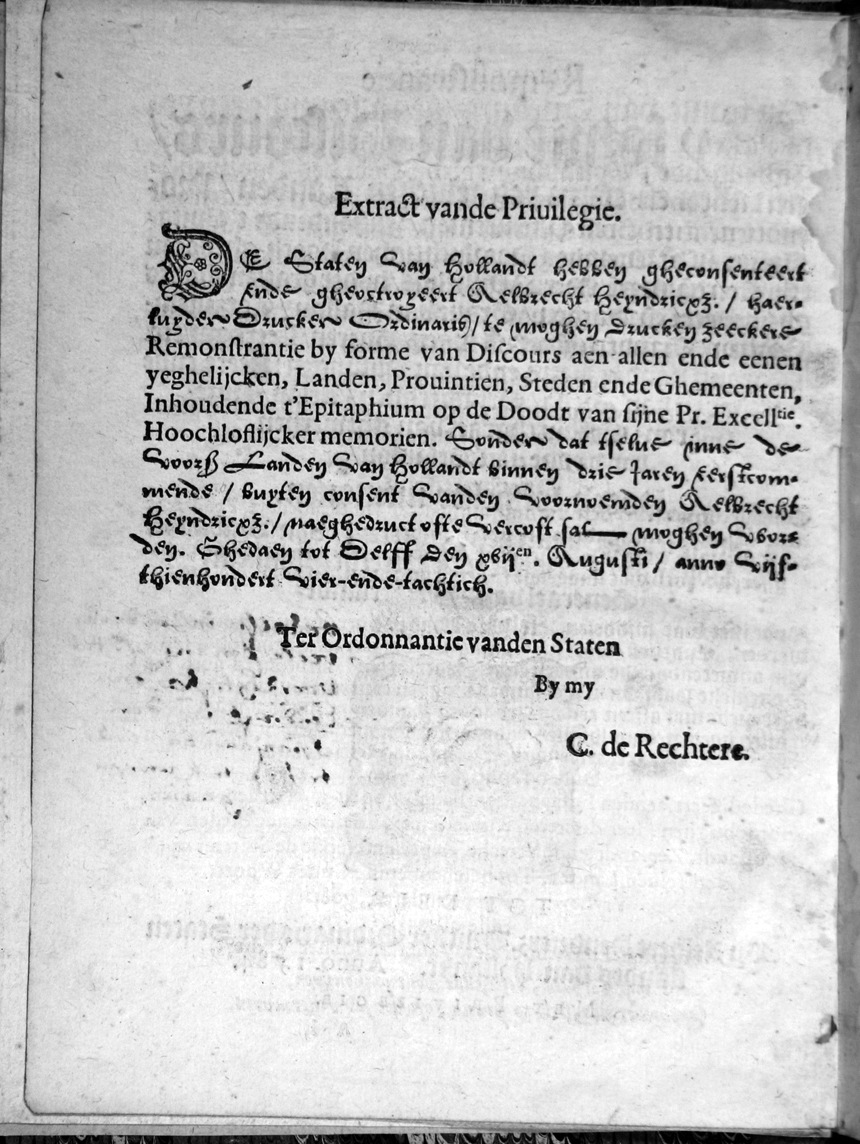 Extract vande Priuilegie.
DE Staten van Hollandt hebben gheconsenteert
ende gheoctroyeert Aelbrecht Heyndricxz. / haer-
luyder Drucker Ordinaris / te moghen drucken zeeckere
Remonstrantie by forme van Discours aen allen ende eenen
yeghelijcken, Landen, Prouintien, Steden ende Ghemeenten,
Inhoudende t'Epitaphium op de Doodt van sijne Pr. Excell^tie.
Hoochloflijcker memorien. Sonder dat tselue inne de
voorß Landen van Hollandt binnen drie Jaren eerstcom-
mende / buyten consent vanden voornoemden Aelbrecht
Heyndricxz. / naeghedruct ofte vercoft sal moghen woor-
den. Ghedaen tot Delff den xvij^en. Augusti / anno vijf-
thienhondert vier-ende-tachtich.
Ter Ordonnantie vanden Staten
By my
C. de Rechtere.